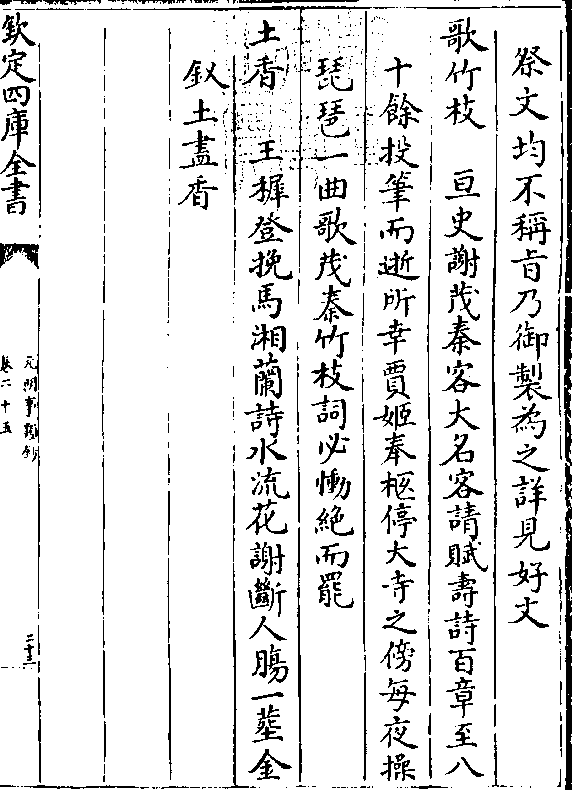 祭文均不稱㫖乃御製為之詳見好文
歌竹枝　亘史謝茂秦客大名客請賦壽詩百章至八
十餘投筆而逝所幸賈姬奉柩停大寺之傍每夜操
琵琶一曲歌茂秦竹枝詞必慟絶而罷
土香　王穉登挽馬湘蘭詩水流花謝斷人腸一塟金
釵土盡香
欽定四庫全書
元明事類鈔
卷二十五
二十三